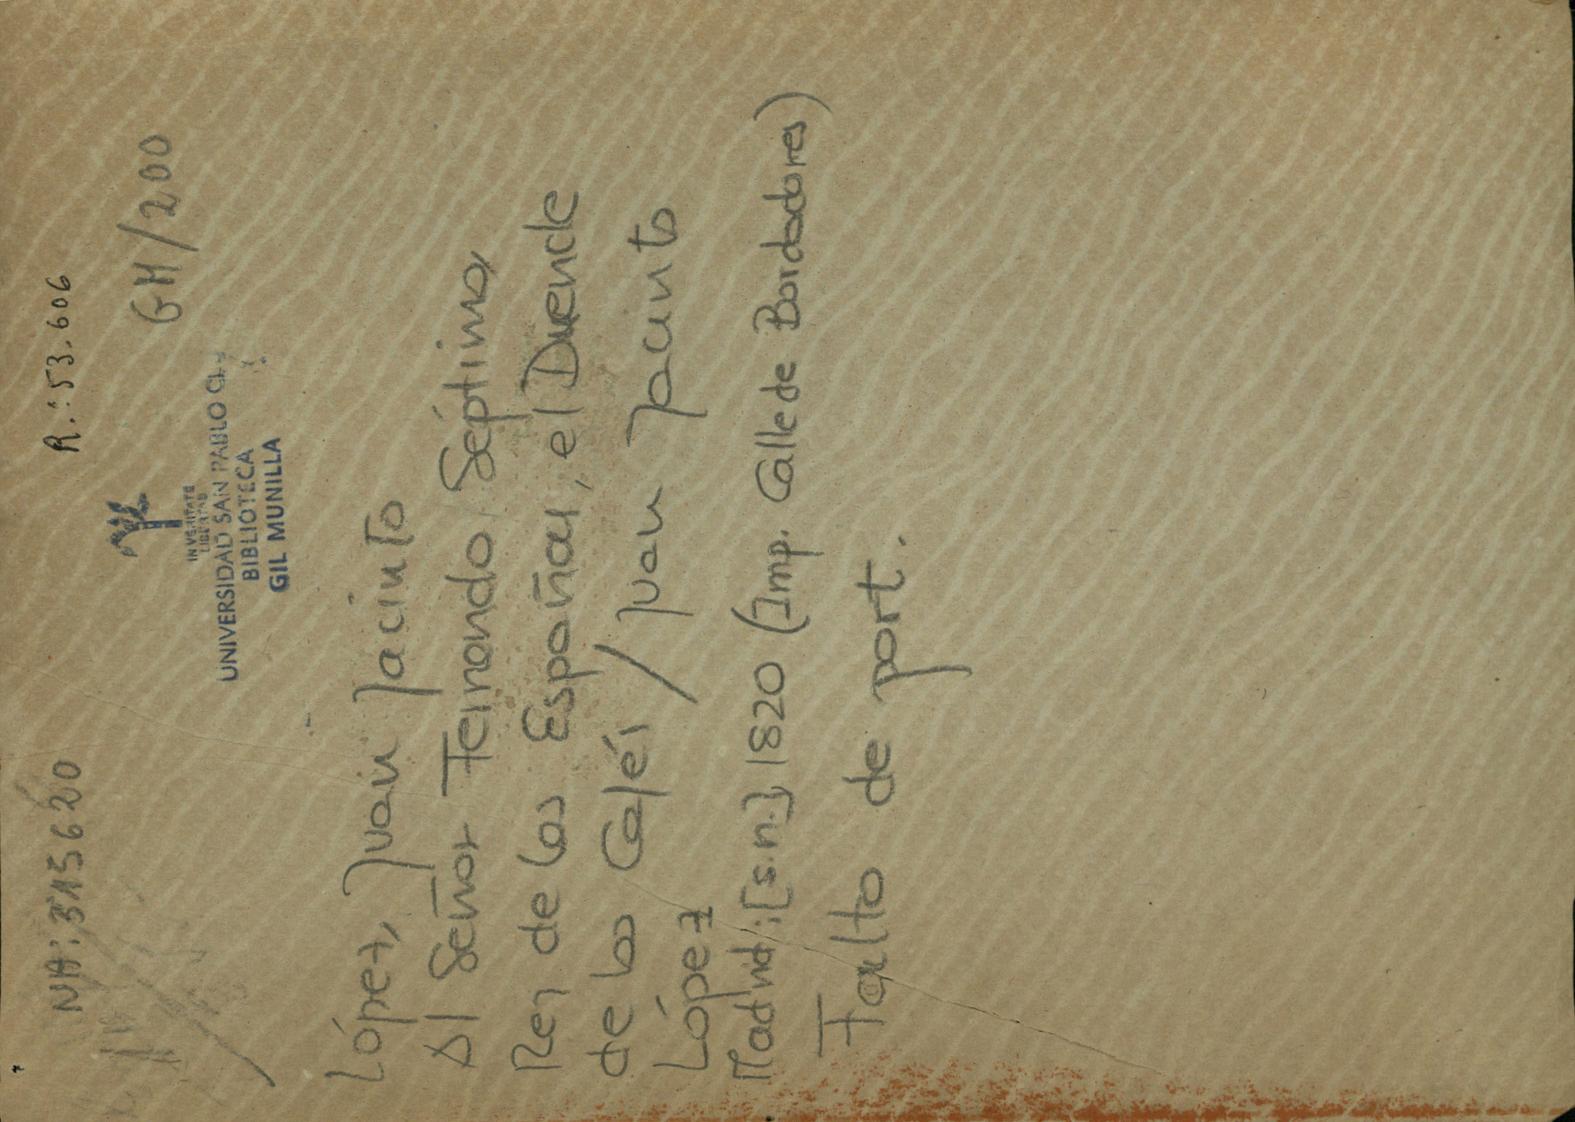 NA: 315620
R.: 53.606
GM/200
INVSTITATE
LIBERTAS
UNIVERSIDAD SAN PABLO
BIBLIOTECA
GIL MUNILLA
López, Juan Jacinto
Al Señor Fernando Séptimo,
Rey de las Españas, el Duende
de los Cafés / Juan Jacinto
López
Madrid: [s.n.], 1820 (Imp. Calle de Bordadores)
Falto de port.